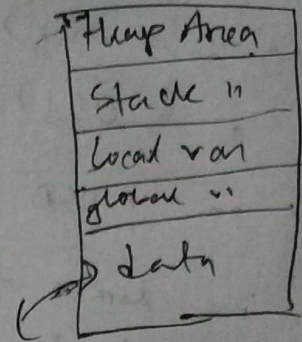 Heap Area
Stack "
local var
global "
data